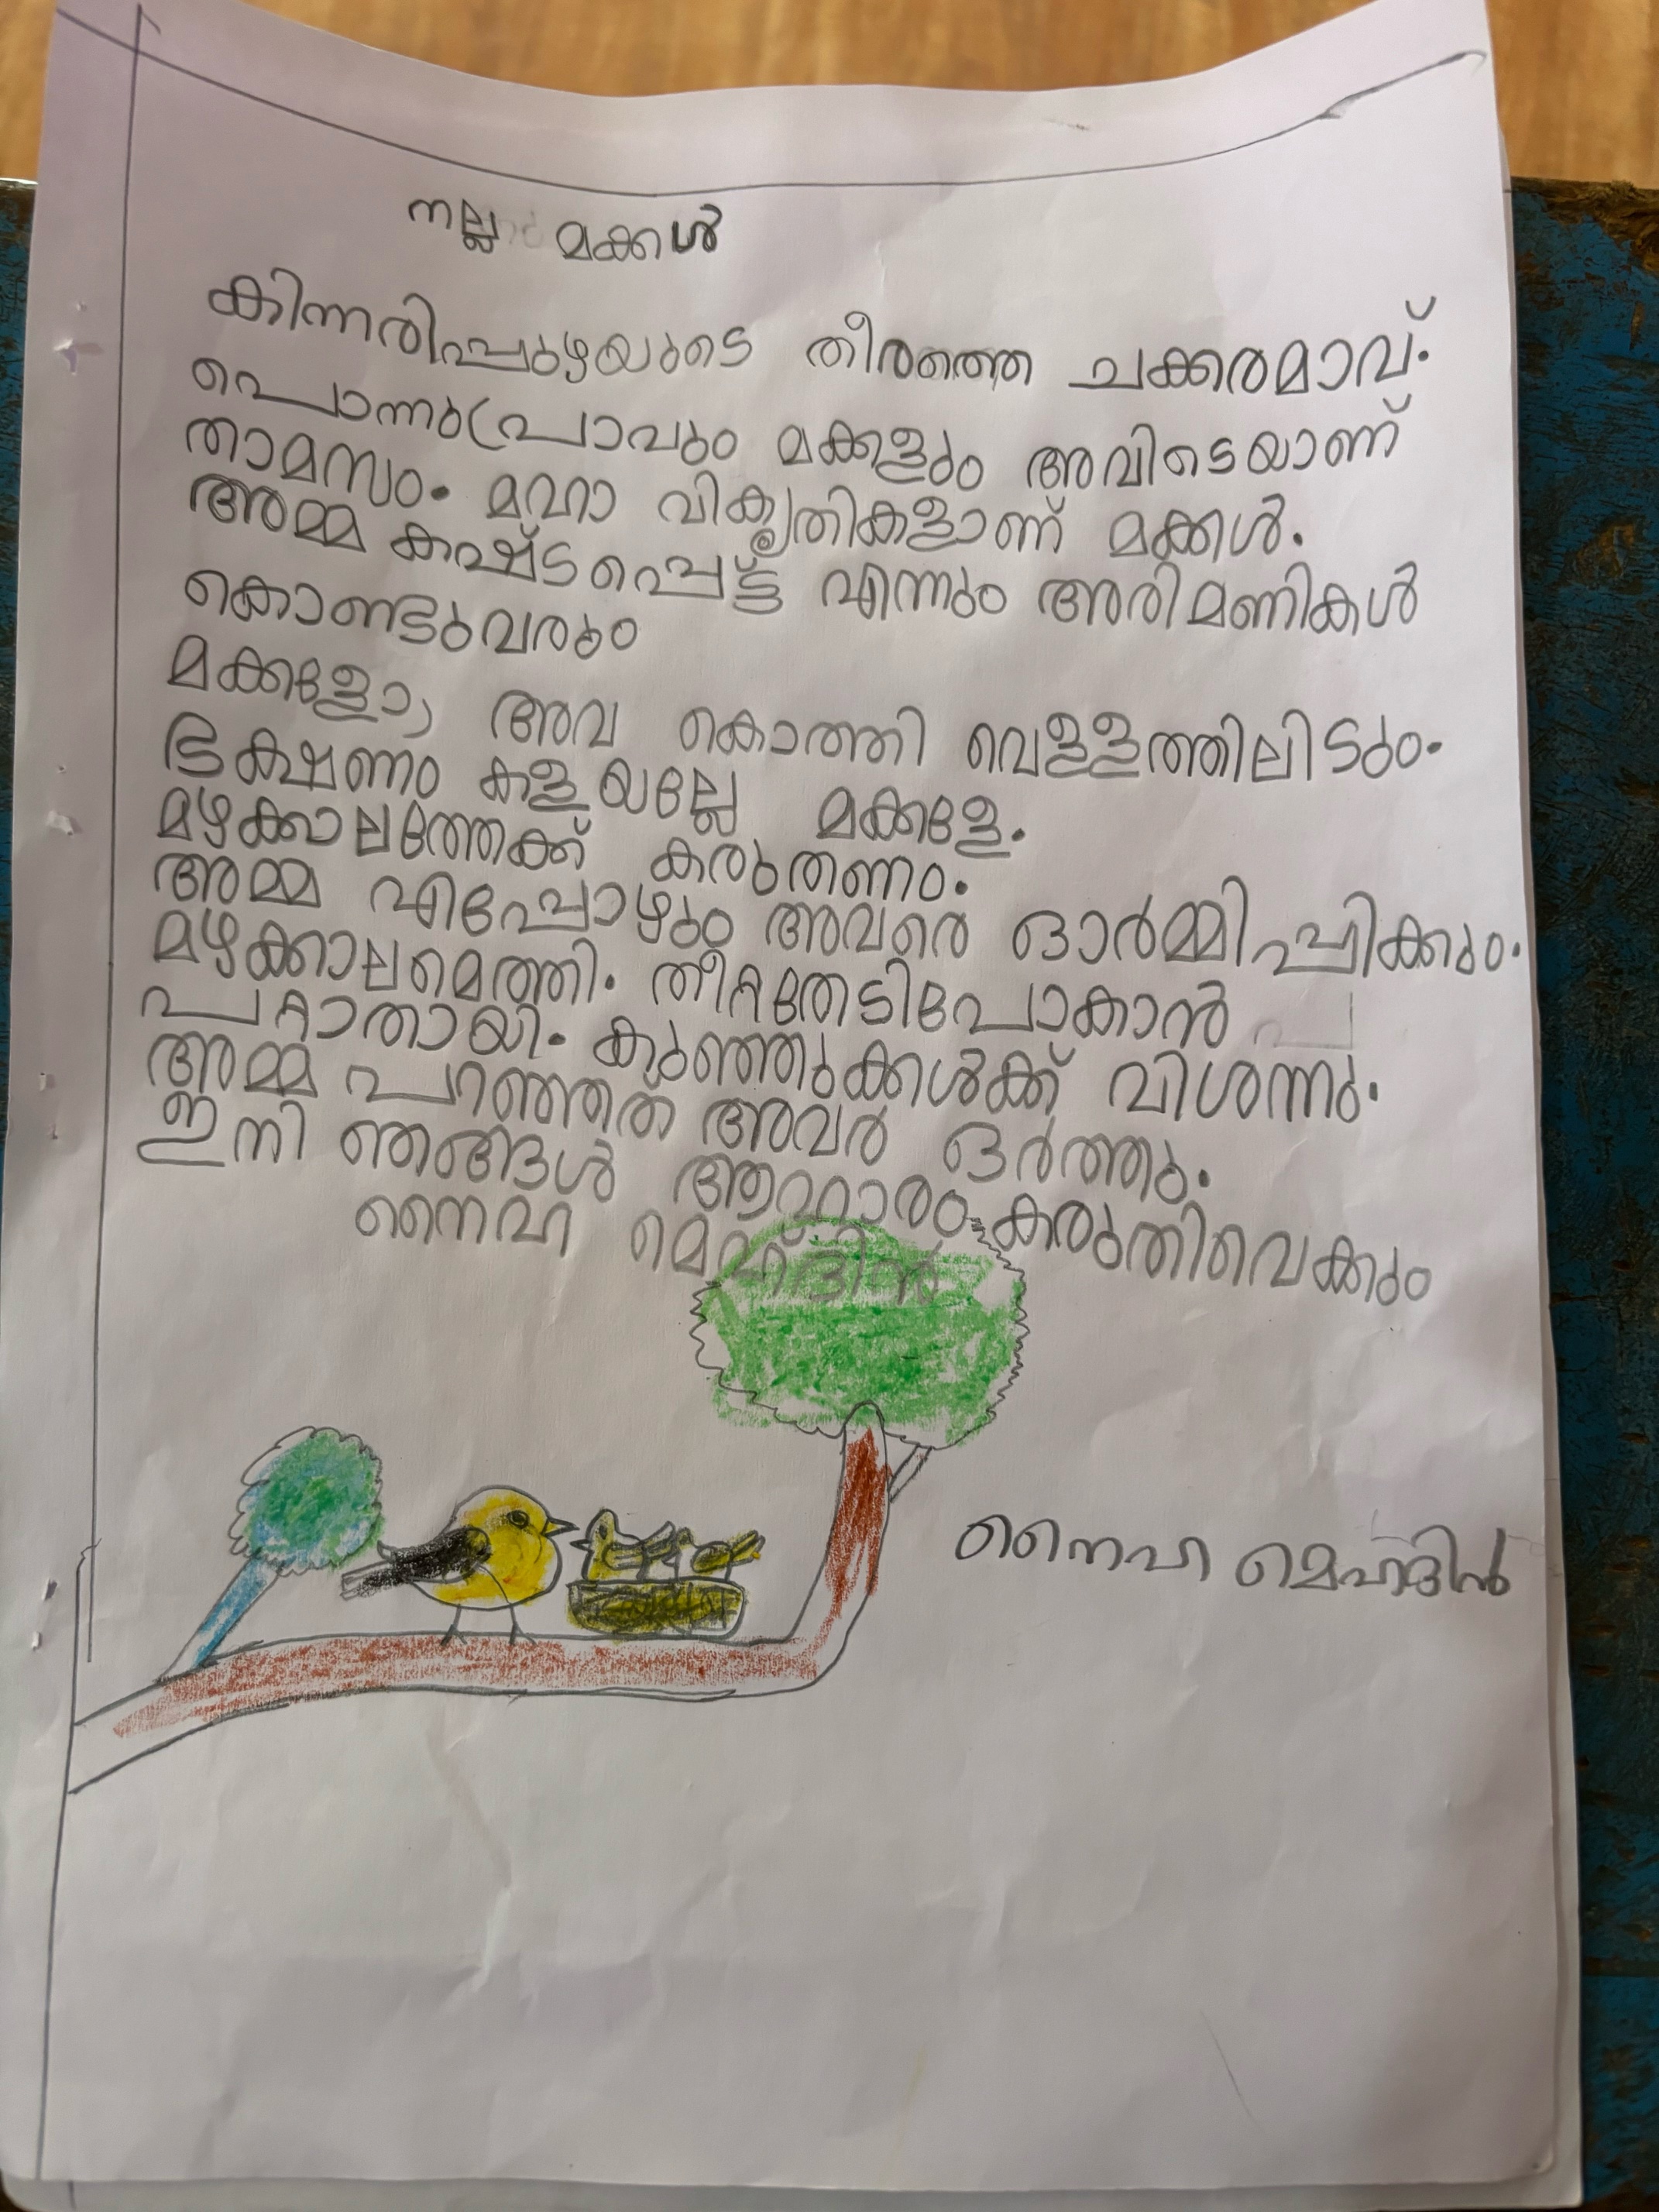 നല്ല മക്കൾ
കിന്നരിപ്പുഴയുടെ തീരത്തെ ചക്കരമാവ്.
പൊന്നുപ്രാവും മക്കളും അവിടെയാണ്
താമസം. മഹാ വികൃതികളാണ് മക്കൾ.
അമ്മ കഷ്ടപ്പെട്ട് എന്നും അരിമണികൾ
കൊണ്ടുവരും
മക്കളോ, അവ കൊത്തി വെള്ളത്തിലിടും.
ഭക്ഷണം കളയല്ലേ മക്കളേ.
മഴക്കാലത്തേക്ക് കരുതണം.
അമ്മ എപ്പോഴും അവരെ ഓർമ്മിപ്പിക്കും.
മഴക്കാലമെത്തി. തീറ്റതേടിപോകാൻ
പറ്റാതായി. കുഞ്ഞുക്കൾക്ക് വിശന്നു.
അമ്മ പറഞ്ഞത് അവർ ഓർത്തു.
ഇനി ഞങ്ങൾ ആഹാരം കരുതിവെക്കും
നൈഹ മെഹ്ദിൻ
നൈഹ മെഹ്ദിൻ